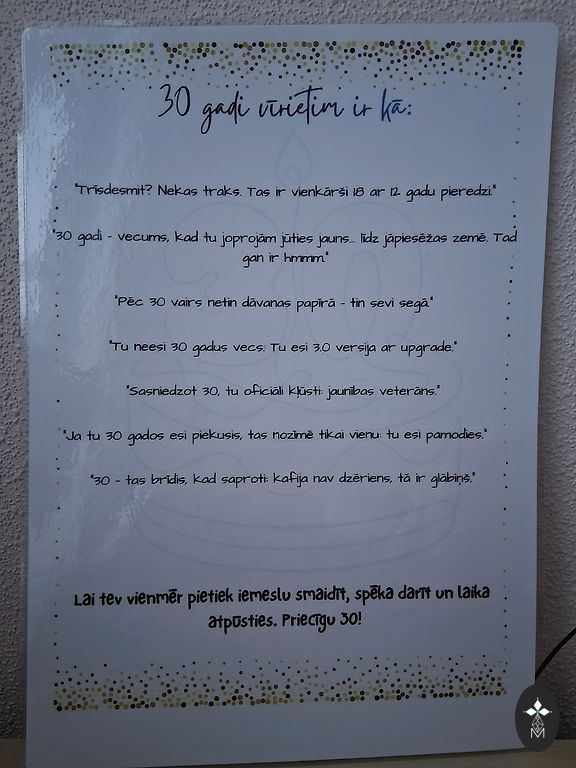 30 gadi vīrietim ir kā:
"Trīsdesmit? Nekas traks. Tas ir vienkārši 18 ar 12 gadu pieredzi."
"30 gadi - vecums, kad tu joprojām jūties jauns... līdz jāpiesēžas zemē. Tad
gan ir hmmm."
"Pēc 30 vairs netin dāvanas papīrā - tin sevi segā."
"Tu neesi 30 gadus vecs. Tu esi 3.0 versija ar upgrade."
"Sasniedzot 30, tu oficiāli kļūsti: jaunības veterāns."
"Ja tu 30 gados esi piekusis, tas nozīmē tikai vienu: tu esi pamodies."
"30 - tas brīdis, kad saproti: kafija nav dzēriens, tā ir glābiņš."
Lai tev vienmēr pietiek iemeslu smaidīt, spēka darīt un laika
atpūsties. Priecīgu 30!